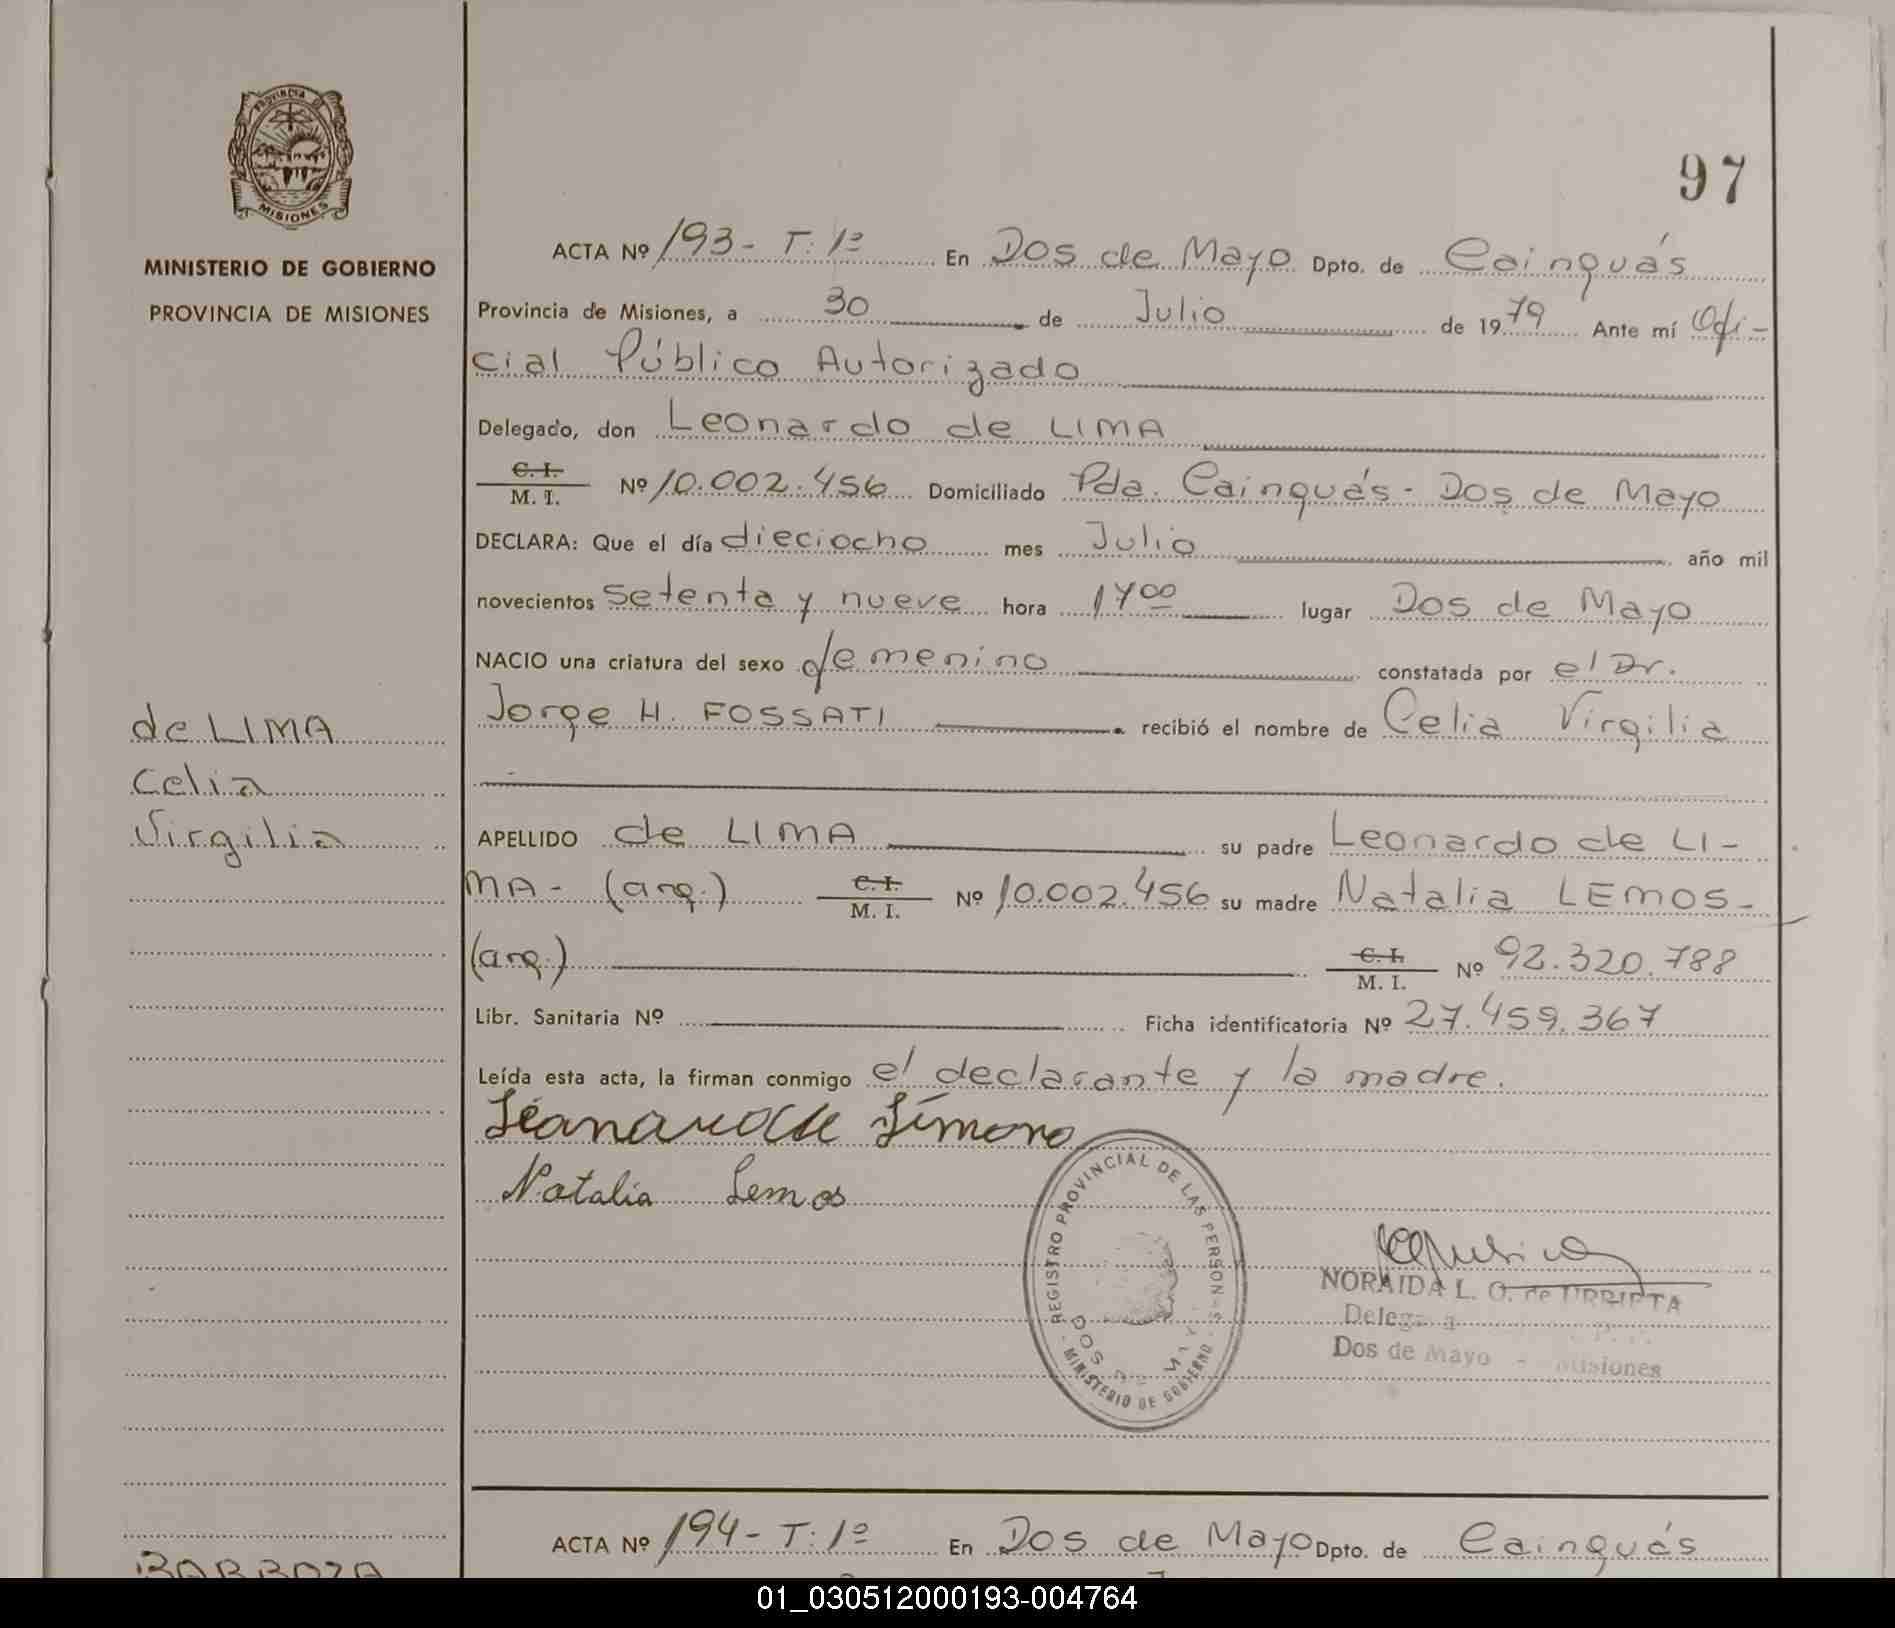 PROVINCIA DE
MISIONES
MINISTERIO DE GOBIERNO
PROVINCIA DE MISIONES
97
ACTA Nº 193- T: 1º En Dos de Mayo Dpto. de Cainguás
Provincia de Misiones, a 30 de Julio de 1979 Ante mí Ofi-
cial Público Autorizado
Delegado, don Leonardo de LIMA
C. I.
M. I. Nº 10.002.456 Domiciliado Pda. Cainguás - Dos de Mayo
DECLARA: Que el día dieciocho mes Julio año mil
novecientos setenta y nueve hora 1700 lugar Dos de Mayo
NACIO una criatura del sexo femenino constatada por el Dr.
Jorge H. FOSSATI recibió el nombre de Celia Virgilia
de LIMA
Celia
Virgilia
APELLIDO de LIMA su padre Leonardo de LI-
MA- (arg.) C. I. M. I. Nº 10.002.456 su madre Natalia LEMOS-
(arg.) C. I. M. I. Nº 92.320.788
Libr. Sanitaria Nº Ficha identificatoria Nº 27.459.367
Leída esta acta, la firman conmigo el declarante y la madre.
Natalia Lemos
REGISTRO PROVINCIAL DE LAS PERSONAS
MINISTERIO DE GOBIERNO
DOS DE MAYO
NORAIDA L. O. de URRIETA
Dos de Mayo - Misiones
ACTA Nº 194- T: 1º En Dos de Mayo Dpto. de Cainguás
BARBOZA
01_030512000193-004764